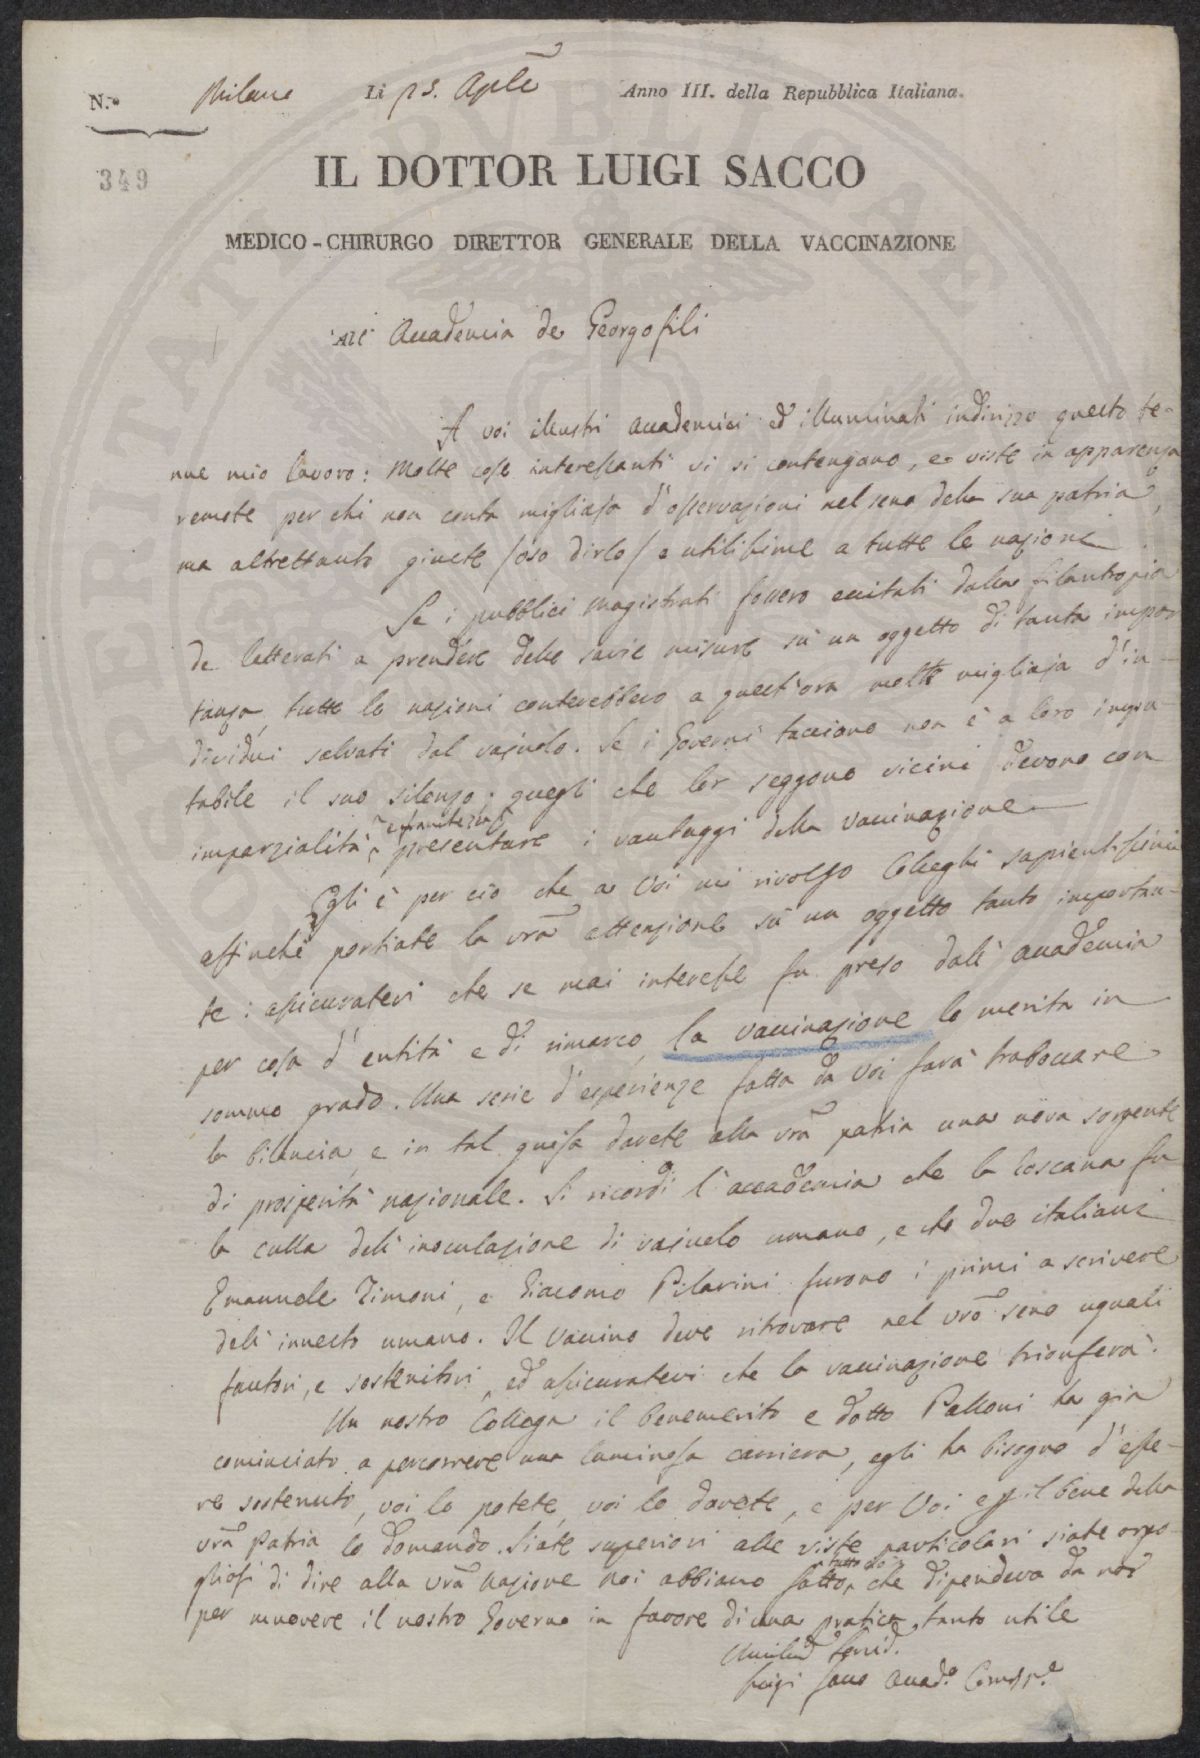 N.° Milano Li 25. Aple Anno III. della Repubblica Italiana.
349
IL DOTTOR LUIGI SACCO
MEDICO-CHIRURGO DIRETTOR GENERALE DELLA VACCINAZIONE
All' Accademia de Georgofili
A voi illustri accademici ed illuminati indirizzo questo te-
nue mio lavoro: Molte cose interessanti vi si contengano, e viste in apparenza
remote per chi non conta migliaja d'osservazioni nel seno della sua patria,
ma altrettanto giuste /oso dirlo/ e utilissime a tutte le nazioni
Se i pubblici Magistrati fossero eccitati dalla filantropia
de letterati a prendere delle savie misure sù un oggetto di tanta impor
tanza, tutte le nazioni conterebbero a quest'ora molte migliaja d'in-
dividui salvati dal vajuolo. Se i Governi tacciono non è a loro impu-
tabile il suo silenzo; quegli che lor seggono vicini devono con
imparzialità e franchezza presentare i vantaggi della vaccinazione
Egli è per ciò che a Voi mi rivolgo Colleghi sapientissimi
affinchè portiate la vrã attenzione sù un oggetto tanto importan-
te: assicuratevi che se mai interesse fu preso dall' accademia
per cosa d'entità e di rimarco, la vaccinazione lo merita in
sommo grado. Una serie d'esperienze fatta da Voi farà traboccare
la bilancia, e in tal guisa darete alla vrã patria una nova sorgente
di prosperità nazionale. Si ricordi l'accademia che la Toscana fu
la culla dell' inoculazione di vajuolo umano, e che due italiani
Emanuele Timoni, e Giacomo Pilarini furono i primi a scrivere
dell' innesto umano. Il Vaccino deve ritrovare nel vrõ seno uguali
fautori, e sostenitori, ed assicuratevi che la vaccinazione trionferà.
Un nostro Collega il benemerito e dotto Palloni ha già
cominciato a percorrere una luminosa carriera, egli ha bisogno d'esse-
re sostenuto, voi lo potete, voi lo dovete, e per Voi e pel bene della
vrã Patria lo domando. Siate superiori alle viste particolari siate orgo-
gliosi di dire alla vrã Nazione noi abbiamo fatto tutto ciò che dipendeva da noi
per muovere il nostro Governo in favore di una pratica tanto utile
Luigi Sacco Accad.° Corrisp.e